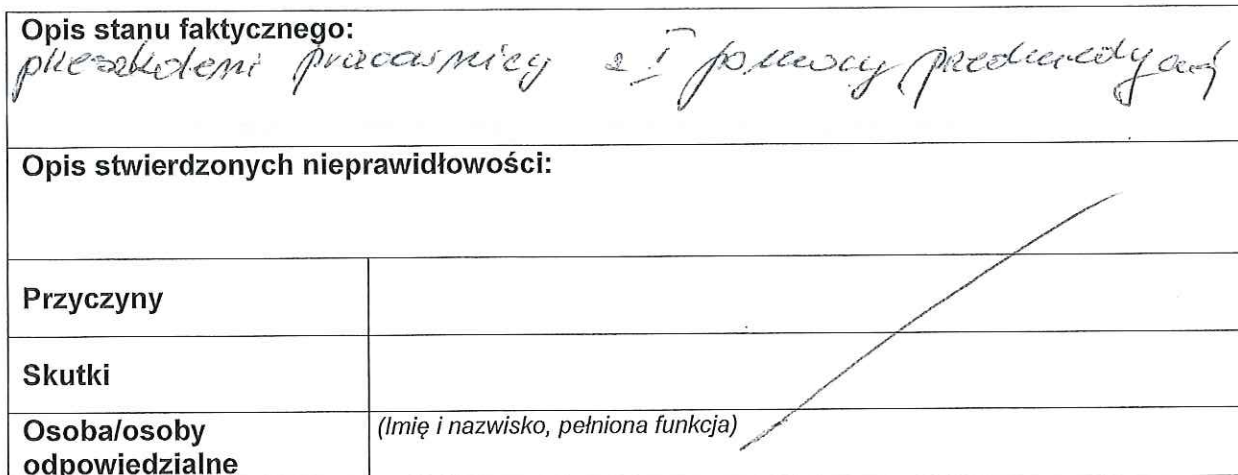 Opis stanu faktycznego:
przeszkoleni pracownicy z I pomocy przedmedycznej
Opis stwierdzonych nieprawidłowości:
Przyczyny
Skutki
Osoba/osoby odpowiedzialne
(Imię i nazwisko, pełniona funkcja)